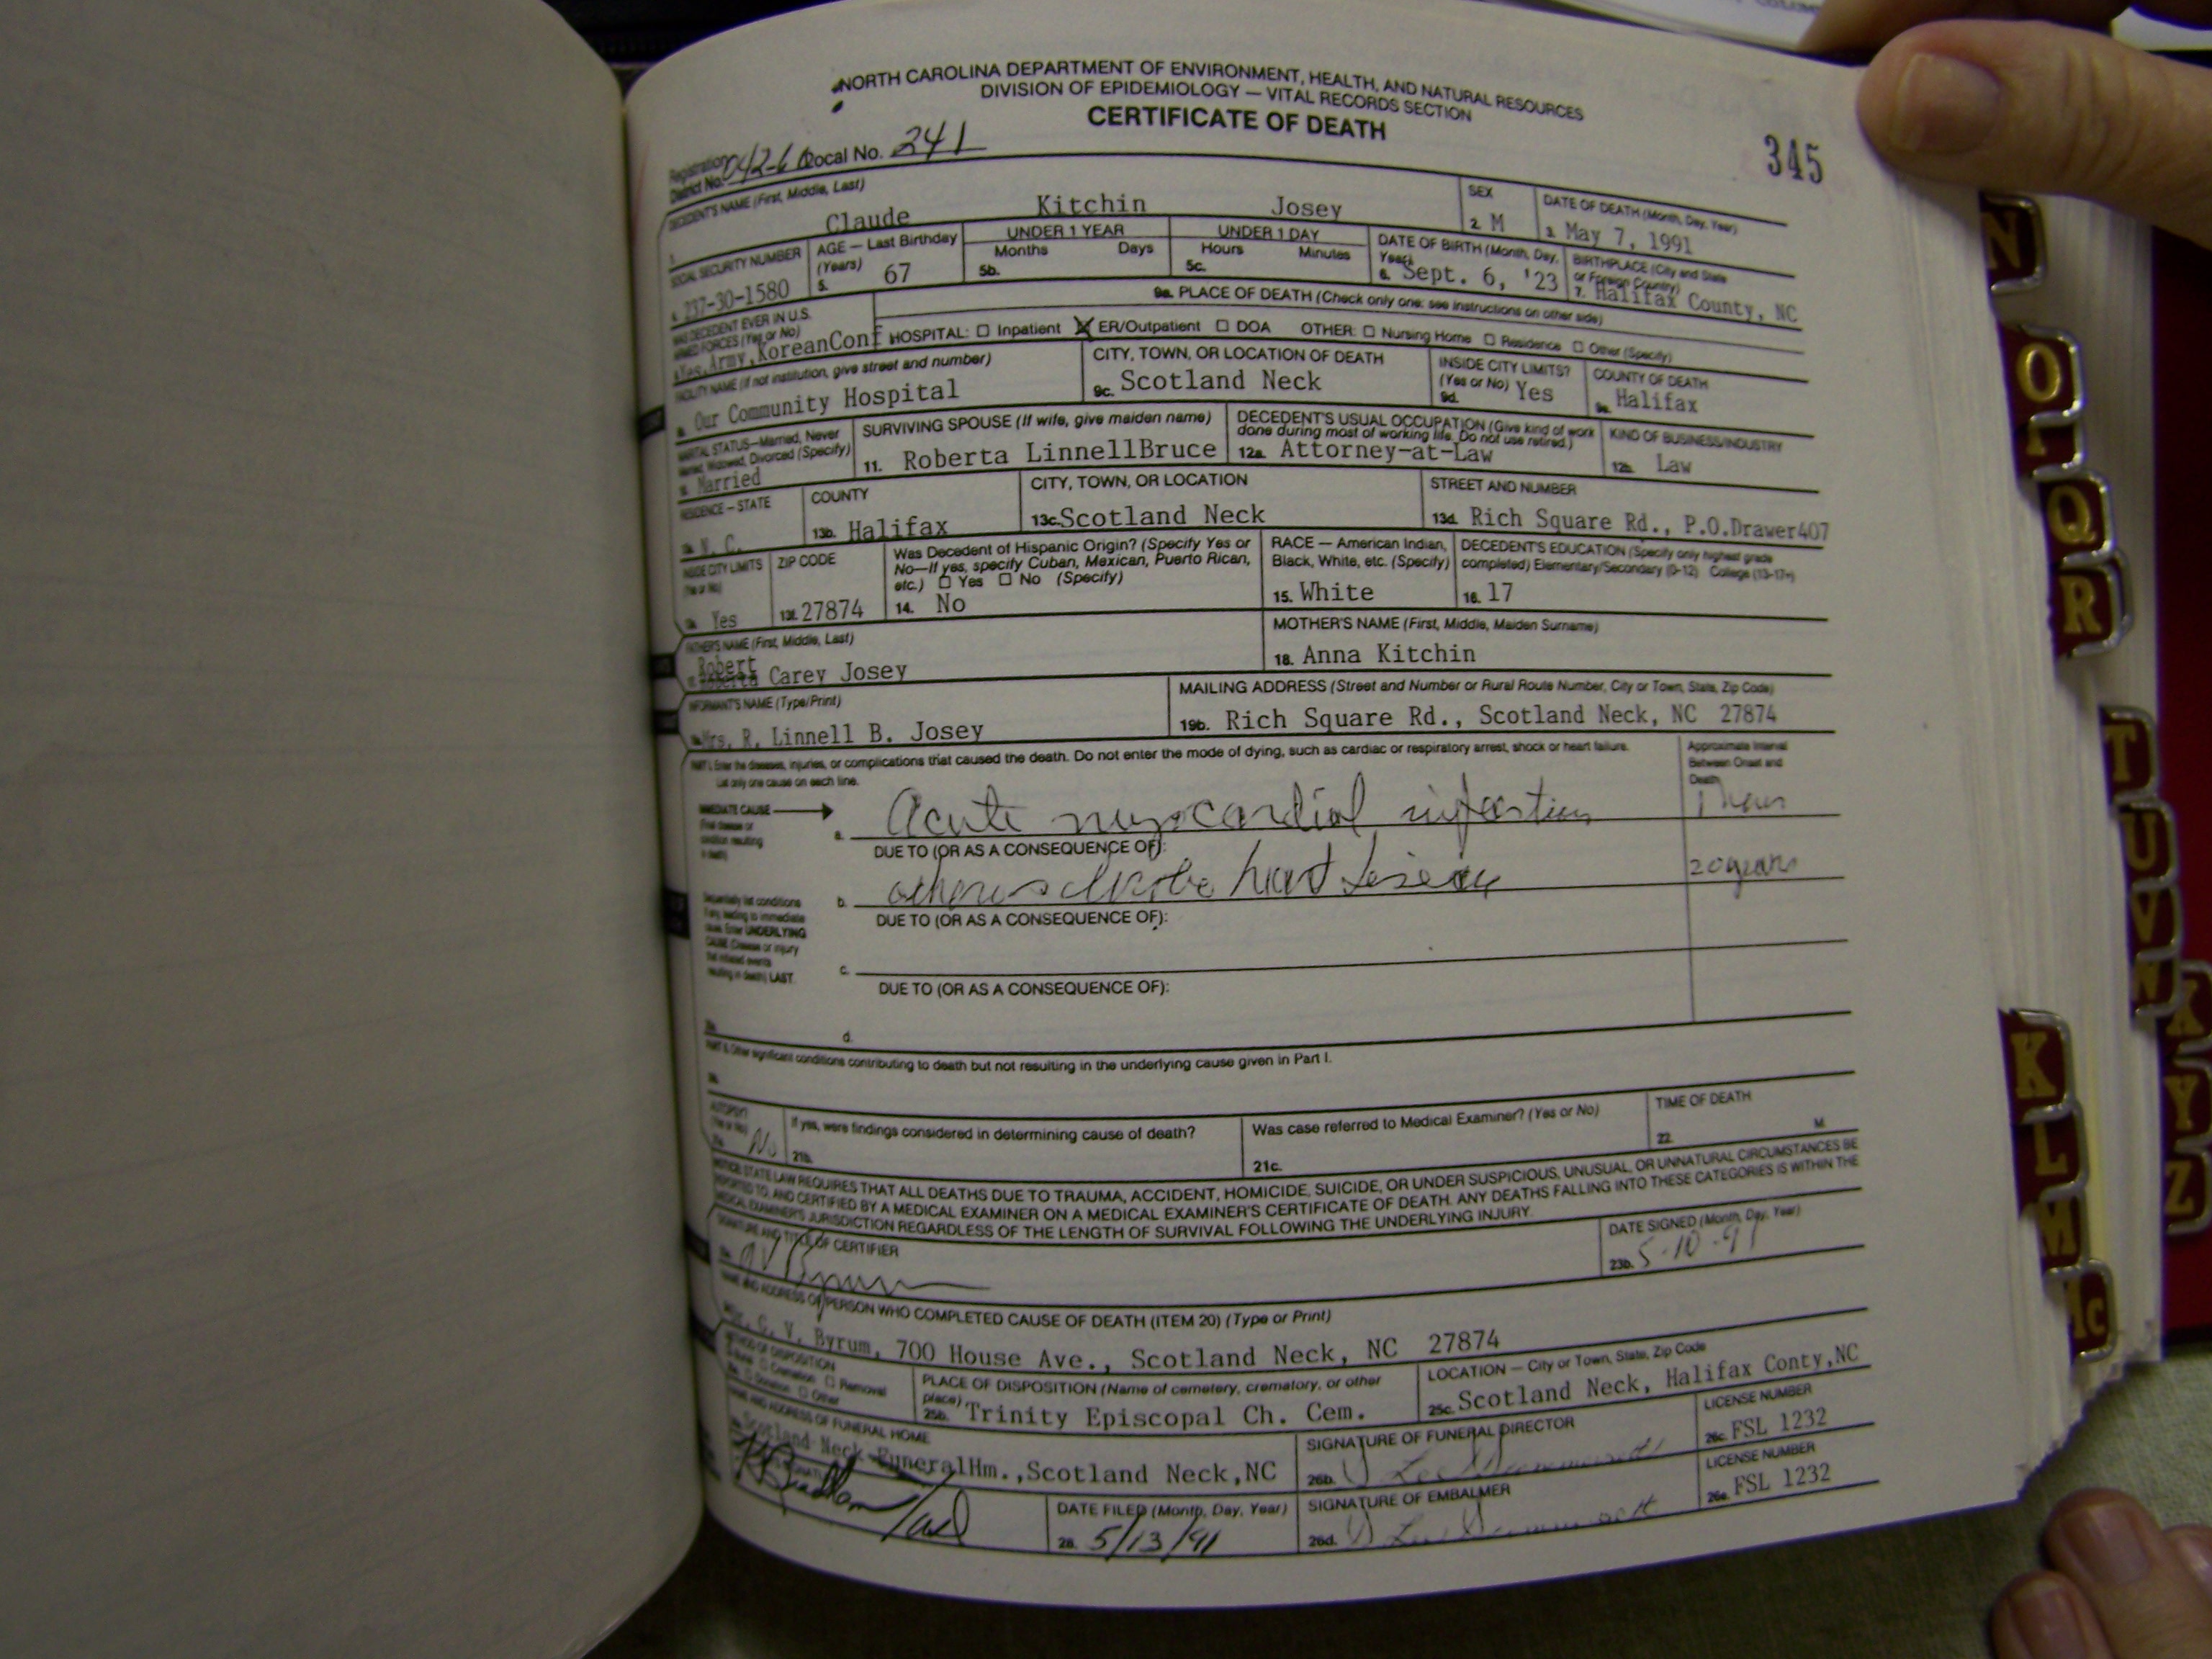 NORTH CAROLINA DEPARTMENT OF ENVIRONMENT, HEALTH, AND NATURAL RESOURCES
DIVISION OF EPIDEMIOLOGY — VITAL RECORDS SECTION
CERTIFICATE OF DEATH
345
Registration District No. Local No. 241
DECEDENT'S NAME (First, Middle, Last) SEX DATE OF DEATH (Month, Day, Year)
1. Claude Kitchin Josey 2. M 3. May 7, 1991
SOCIAL SECURITY NUMBER AGE — Last Birthday (Years) UNDER 1 YEAR UNDER 1 DAY DATE OF BIRTH (Month, Day, Year) BIRTHPLACE (City and State or Foreign Country)
Months Days Hours Minutes
4. 237-30-1580 5. 67 5b. 5c. 6. Sept. 6, '23 7. Halifax County, NC
WAS DECEDENT EVER IN U.S. ARMED FORCES (Yes or No) 9a. PLACE OF DEATH (Check only one: see instructions on other side)
Yes, Army, KoreanConf HOSPITAL: Inpatient ER/Outpatient DOA OTHER: Nursing Home Residence Other (Specify)
FACILITY NAME (If not institution, give street and number) CITY, TOWN, OR LOCATION OF DEATH INSIDE CITY LIMITS? (Yes or No) COUNTY OF DEATH
Our Community Hospital 9c. Scotland Neck 9d. Yes 9e. Halifax
MARITAL STATUS—Married, Never Married, Widowed, Divorced (Specify) SURVIVING SPOUSE (If wife, give maiden name) DECEDENT'S USUAL OCCUPATION (Give kind of work done during most of working life. Do not use retired.) KIND OF BUSINESS/INDUSTRY
Married 11. Roberta LinnellBruce 12a. Attorney-at-Law 12b. Law
RESIDENCE — STATE COUNTY CITY, TOWN, OR LOCATION STREET AND NUMBER
N. C. 13b. Halifax 13c. Scotland Neck 13d. Rich Square Rd., P.O.Drawer407
INSIDE CITY LIMITS (Yes or No) ZIP CODE Was Decedent of Hispanic Origin? (Specify Yes or No—If yes, specify Cuban, Mexican, Puerto Rican, etc.) Yes No (Specify) RACE — American Indian, Black, White, etc. (Specify) DECEDENT'S EDUCATION (Specify only highest grade completed) Elementary/Secondary (0-12) College (13-17+)
Yes 13f. 27874 14. No 15. White 16. 17
FATHER'S NAME (First, Middle, Last) MOTHER'S NAME (First, Middle, Maiden Surname)
Robert
Carey Josey 18. Anna Kitchin
INFORMANT'S NAME (Type/Print) MAILING ADDRESS (Street and Number or Rural Route Number, City or Town, State, Zip Code)
Mrs. R. Linnell B. Josey 19b. Rich Square Rd., Scotland Neck, NC 27874
PART I. Enter the diseases, injuries, or complications that caused the death. Do not enter the mode of dying, such as cardiac or respiratory arrest, shock or heart failure. Approximate Interval Between Onset and Death
List only one cause on each line.
IMMEDIATE CAUSE (Final disease or condition resulting in death)
a. Acute myocardial infarction 1 hour
DUE TO (OR AS A CONSEQUENCE OF):
b. heart disease 20 years
DUE TO (OR AS A CONSEQUENCE OF):
Sequentially list conditions if any, leading to immediate cause. Enter UNDERLYING CAUSE (Disease or injury that initiated events resulting in death) LAST
c.
DUE TO (OR AS A CONSEQUENCE OF):
d.
PART II. Other significant conditions contributing to death but not resulting in the underlying cause given in Part I.
AUTOPSY? (Yes or No) If yes, were findings considered in determining cause of death? Was case referred to Medical Examiner? (Yes or No) TIME OF DEATH
No 21b. 21c. 22. M
NOTICE: STATE LAW REQUIRES THAT ALL DEATHS DUE TO TRAUMA, ACCIDENT, HOMICIDE, SUICIDE, OR UNDER SUSPICIOUS, UNUSUAL, OR UNNATURAL CIRCUMSTANCES BE
REPORTED TO, AND CERTIFIED BY A MEDICAL EXAMINER ON A MEDICAL EXAMINER'S CERTIFICATE OF DEATH. ANY DEATHS FALLING INTO THESE CATEGORIES IS WITHIN THE
MEDICAL EXAMINER'S JURISDICTION REGARDLESS OF THE LENGTH OF SURVIVAL FOLLOWING THE UNDERLYING INJURY.
SIGNATURE AND TITLE OF CERTIFIER DATE SIGNED (Month, Day, Year)
23b. 5-10-91
NAME AND ADDRESS OF PERSON WHO COMPLETED CAUSE OF DEATH (ITEM 20) (Type or Print)
V. Byrum, 700 House Ave., Scotland Neck, NC 27874
METHOD OF DISPOSITION Cremation Removal Donation Other PLACE OF DISPOSITION (Name of cemetery, crematory, or other place) LOCATION — City or Town, State, Zip Code
25b. Trinity Episcopal Ch. Cem. 25c. Scotland Neck, Halifax Conty,NC
NAME AND ADDRESS OF FUNERAL HOME SIGNATURE OF FUNERAL DIRECTOR LICENSE NUMBER
Scotland Neck FuneralHm.,Scotland Neck,NC 26b. 26c. FSL 1232
DATE FILED (Month, Day, Year) SIGNATURE OF EMBALMER LICENSE NUMBER
28. 5/13/91 26d. 26e. FSL 1232
N
O
Q
R
T
U
V
W
X
Y
Z
K
L
M
Mc